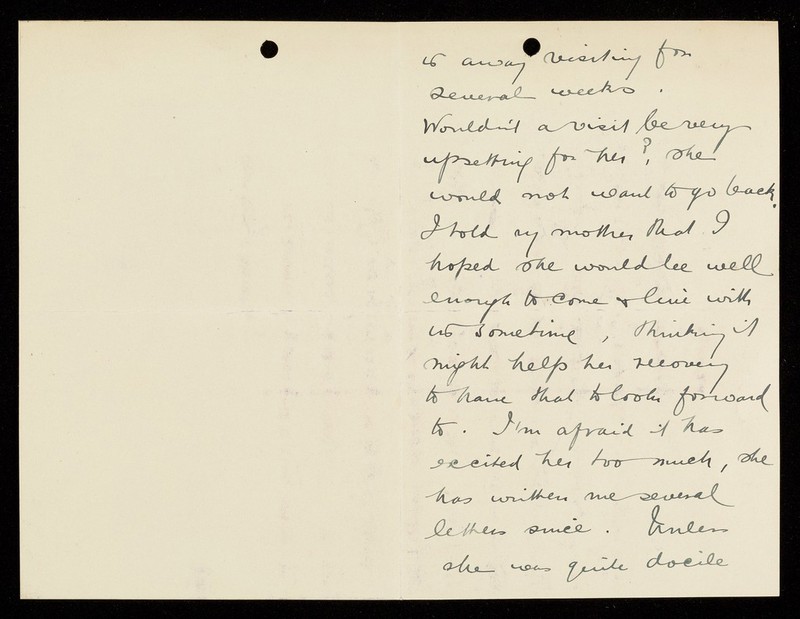 is away visiting for
several weeks.
Wouldn't a visit be very
upsetting for her?, she
would not want to go back.
I told my mother that I
hoped she would be well
enough to come & live with
us sometime, thinking it
might help her recovery
to have that to look forward
to. I'm afraid it has
excited her too much, she
has written me several
letters since. Unless
she was quite docile